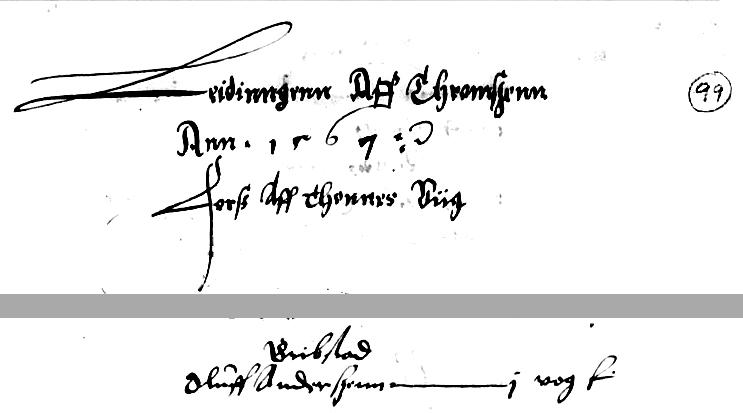 Leidinngenn Aff Thromssenn 99
Ann. 1567
Først Aff Thennes Viig
Gribstad
Oluff Anderssenn j vog f